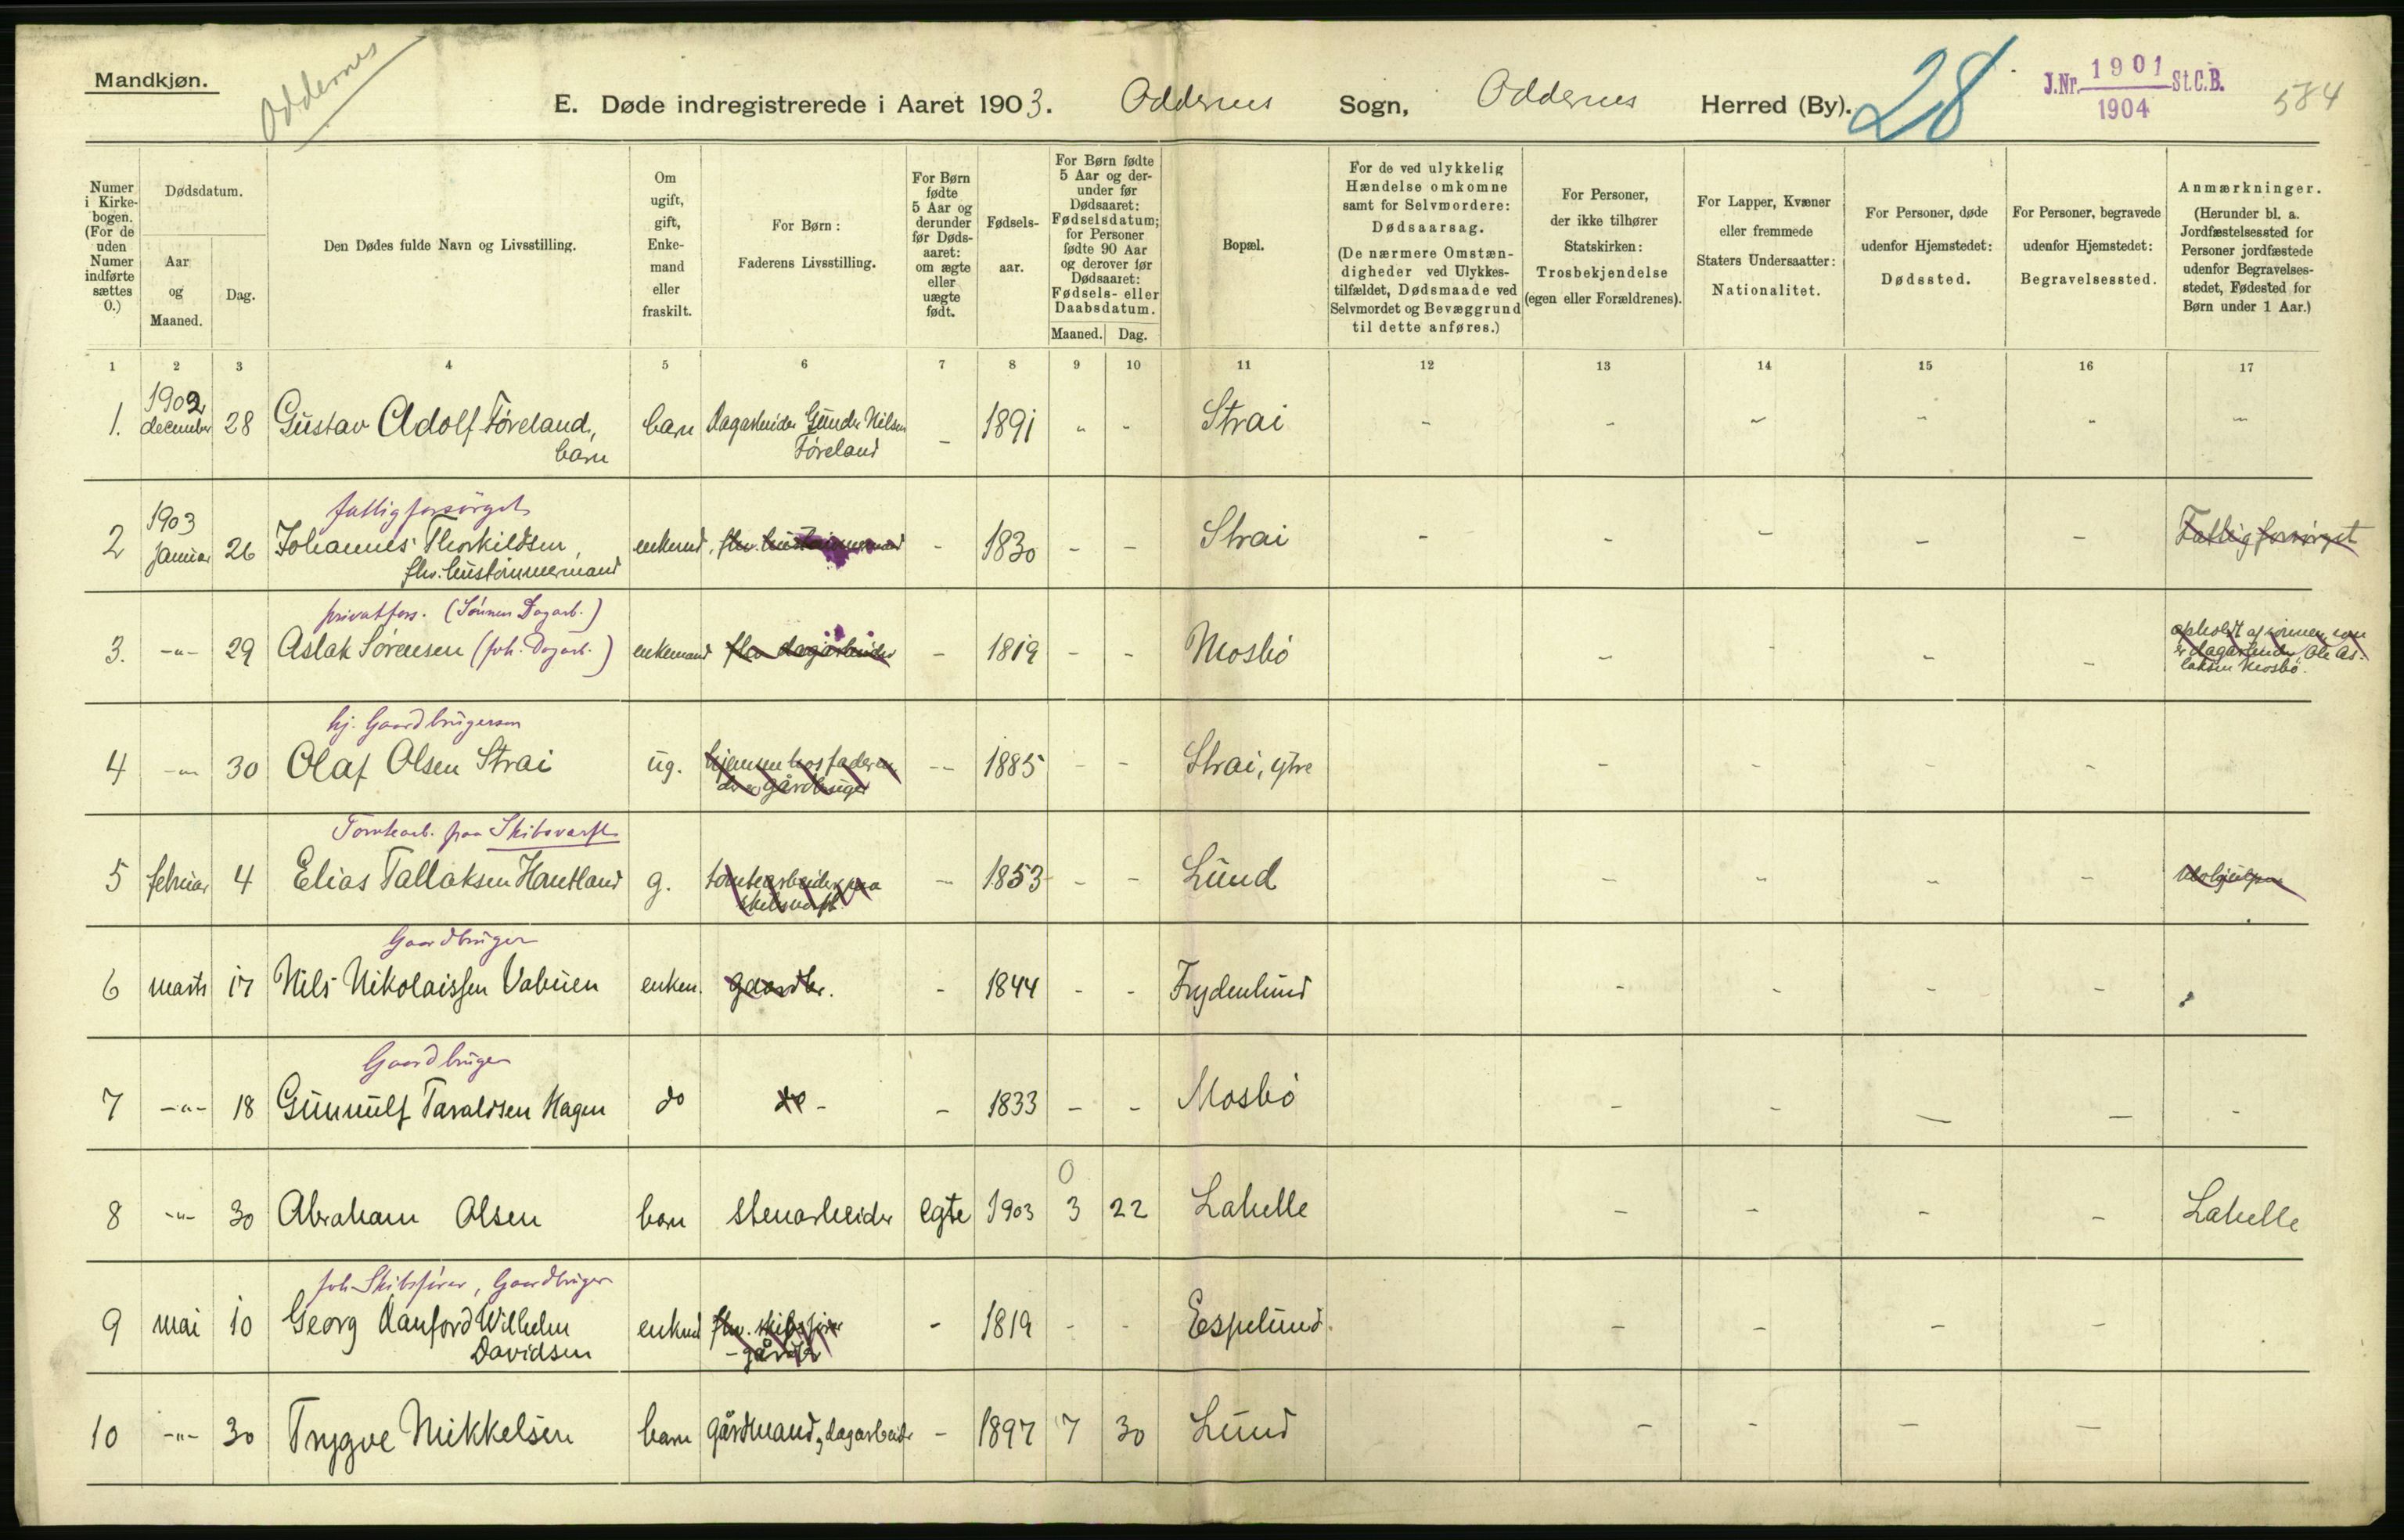 Mandkjøn.
Oddernes
E. Døde indregistrerede i Aaret 1903. Oddernes Sogn, Oddernes Herred (By).
28
J.Nr. 1901 St.C.B.
1904
584
Numer i Kirkebogen. (For de uden Numer indførte sættes 0.)
Dødsdatum.
Aar og Maaned.
Dag.
Den Dødes fulde Navn og Livsstilling.
Om ugift, gift, Enkemand eller fraskilt.
For Børn: Faderens Livsstilling.
For Børn fødte 5 Aar og derunder før Dødsaaret: om ægte eller uægte født.
Fødselsaar.
For Børn fødte 5 Aar og derunder før Dødsaaret: Fødselsdatum; for Personer fødte 90 Aar og derover før Dødsaaret: Fødsels- eller Daabsdatum.
Maaned. Dag.
Bopæl.
For de ved ulykkelig Hændelse omkomne samt for Selvmordere: Dødsaarsag. (De nærmere Omstændigheder ved Ulykkestilfældet, Dødsmaade ved Selvmordet og Bevæggrund til dette anføres.)
For Personer, der ikke tilhører Statskirken: Trosbekjendelse (egen eller Forældrenes).
For Lapper, Kvæner eller fremmede Staters Undersaatter: Nationalitet.
For Personer, døde udenfor Hjemstedet: Dødssted.
For Personer, begravede udenfor Hjemstedet: Begravelsessted.
Anmærkninger. (Herunder bl. a. Jordfæstelsessted for Personer jordfæstede udenfor Begravelsesstedet, Fødested for Børn under 1 Aar.)
1 2 3 4 5 6 7 8 9 10 11 12 13 14 15 16 17
1902
1. december 28 Gustav Adolf Føreland, barn Dagarbeider Gunder Nilsen - 1891 " " Strai - - - - - -
barn Føreland
fattigforsørget
1903
2 januar 26 Johannes Thorkildsen, enkemd. flv. hustømmermand - 1830 - - Strai - - - - - Fattigforsørget
flv. hustømmermand
privatfors. (Sønnen Dagarb.)
3. -"- 29 Aslak Sørensen (foh. Dagarb.) enkemand flv dagarbeider - 1819 - - Mosbø - - - - opholdt af sønnen som
er dagarbeider, Ole As-
laksen Mosbø.
hj. Gaardbrugersøn
4 -"- 30 Olaf Olsen Strai ug. hjemme hos faderen -- 1885 - - Strai, ytre - - - -
der er gårdbruger
Tomtearb. paa Skibsværft
5 februar 4 Elias Tallaksen Hantland g. tomtearbeider paa - 1853 - - Lund - - - -
skibsværft
Gaardbruger
6 marts 17 Nils Nikolaissen Vabuen enken. gaardbr. - 1844 - - Frydenlund - - - -
Gaardbruger
7 -"- 18 Gunnulf Taraldsen Hagen do do - - 1833 - - Mosbø - - - - -
0
8 -"- 30 Abraham Olsen barn stenarbeider egte 1903 3 22 Lahelle - - - - Lahelle
foh. Skibsfører, Gaardbruger
9 mai 10 Georg Danford Wilhelm enkmd flv. skibsfører - 1819 - - Espelund. - - - -
Davidsen - gårdbr
10 -"- 30 Trygve Mikkelsen barn gårdmand, dagarbeider - 1897 7 30 Lund - - - -